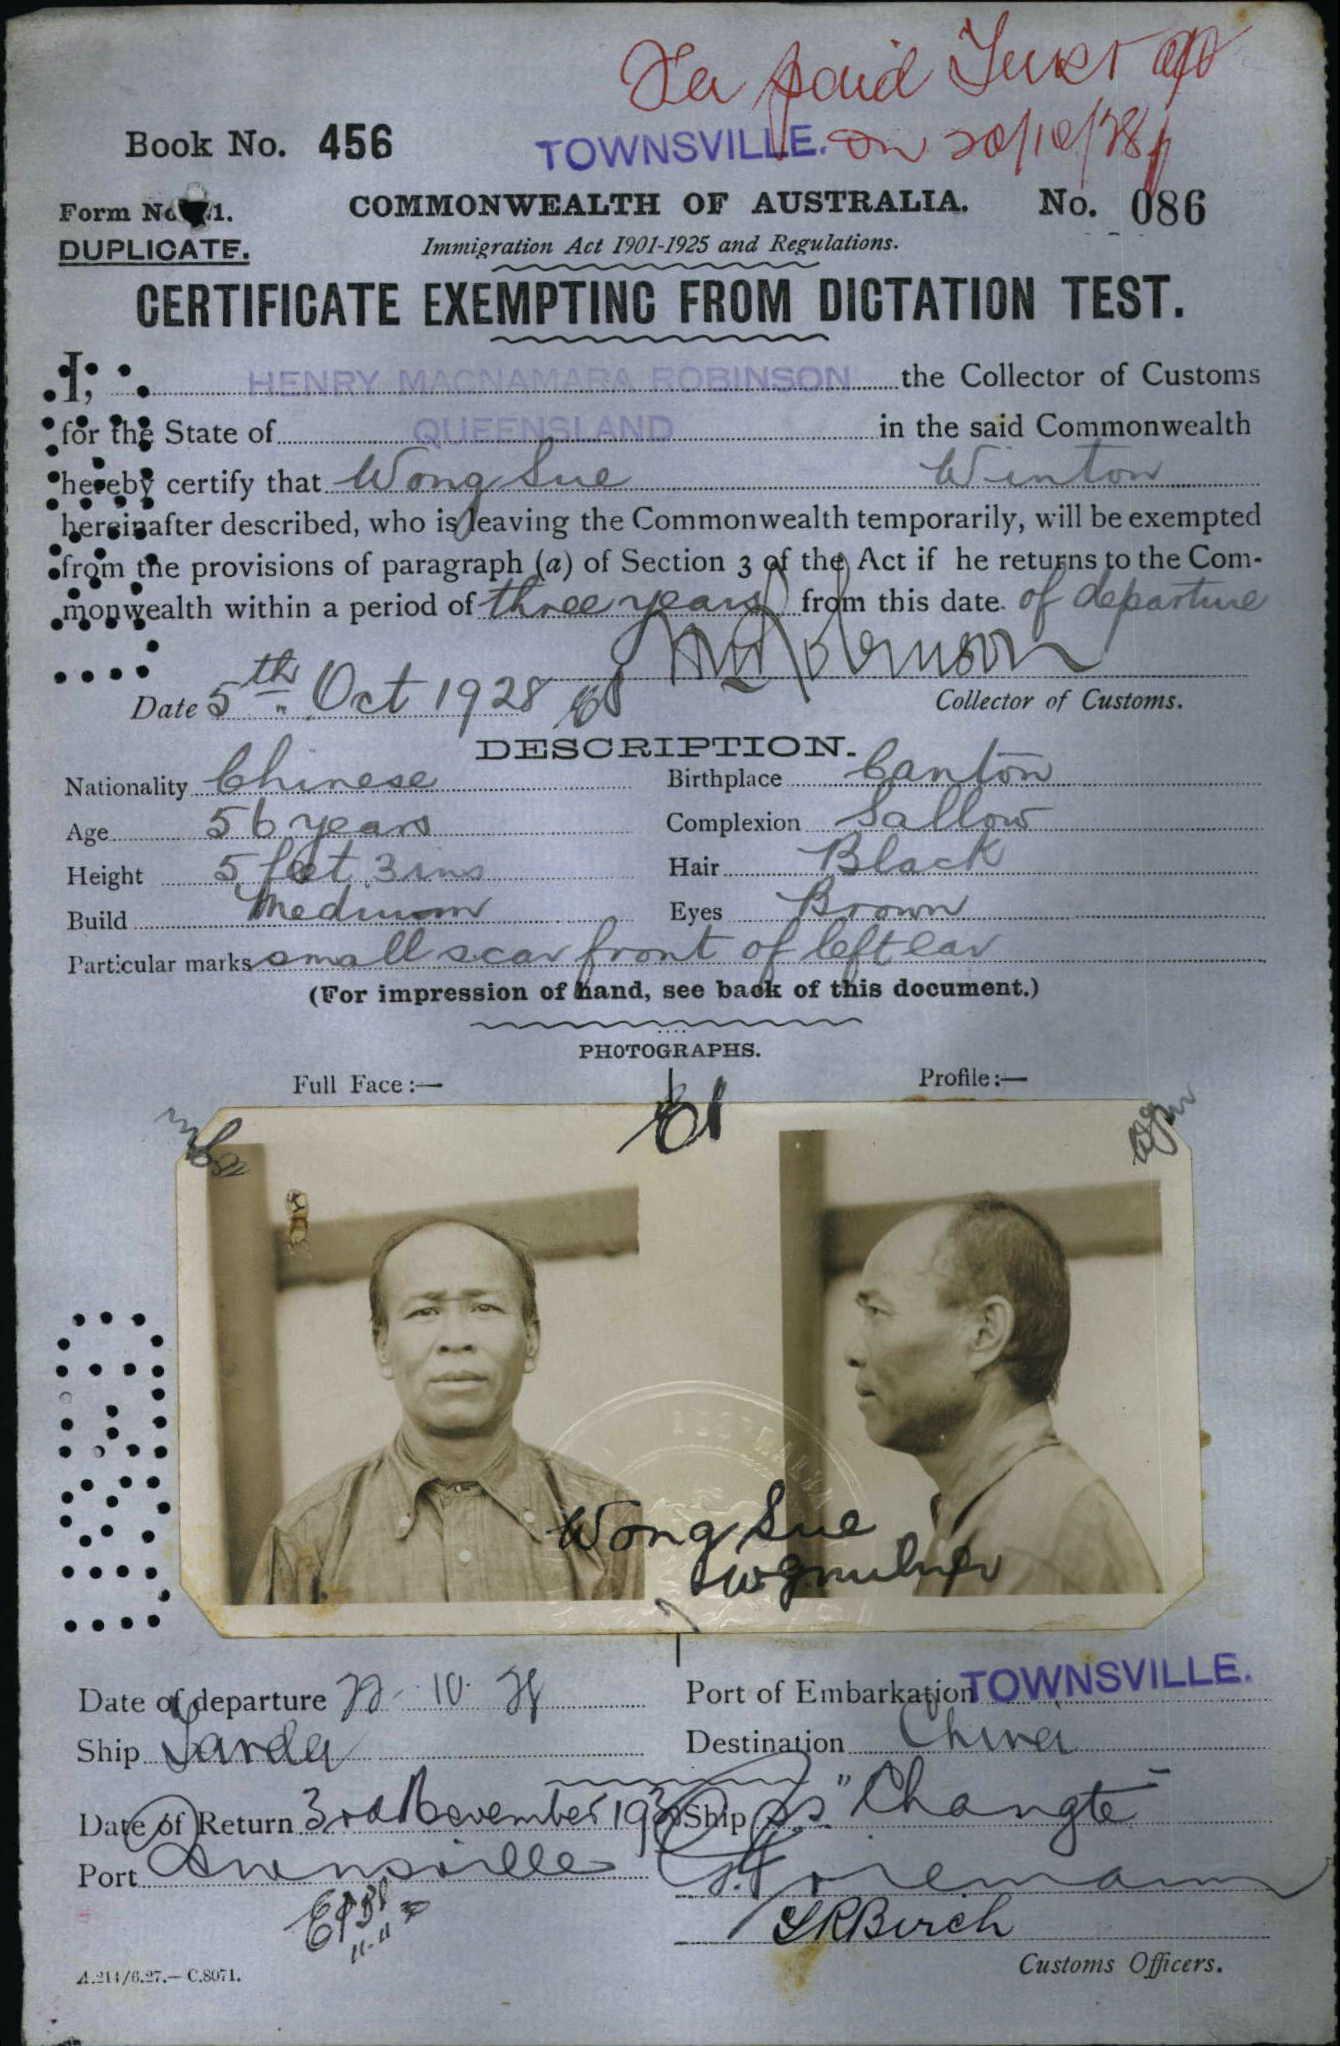 Fee paid
on 20/10/28
Book No. 456
TOWNSVILLE.
Form No 1.
COMMONWEALTH OF AUSTRALIA.
No. 086
DUPLICATE.
Immigration Act 1901-1925 and Regulations.
CERTIFICATE EXEMPTING FROM DICTATION TEST.
I, HENRY MACNAMARA ROBINSON the Collector of Customs
for the State of QUEENSLAND in the said Commonwealth
hereby certify that Wong Sue Winton
hereinafter described, who is leaving the Commonwealth temporarily, will be exempted
from the provisions of paragraph (a) of Section 3 of the Act if he returns to the Com-
monwealth within a period of three years from this date of departure
HMRobinson
Date 5th Oct 1928
Collector of Customs.
DESCRIPTION.
Nationality Chinese Birthplace Canton
Age 56 years Complexion Sallow
Height 5 feet 3 ins Hair Black
Build Medium Eyes Brown
Particular marks small scar front of left ear
(For impression of hand, see back of this document.)
PHOTOGRAPHS.
Full Face :— Profile :—
Wong Sue
Date of departure 22-10-28 Port of Embarkation TOWNSVILLE.
Ship Tanda Destination China
Date of Return 3rd November 1930 Ship s.s. "Changte"
Port Townsville
Birch
11-11-30
A.214/6.27.—C.8071.
Customs Officers.